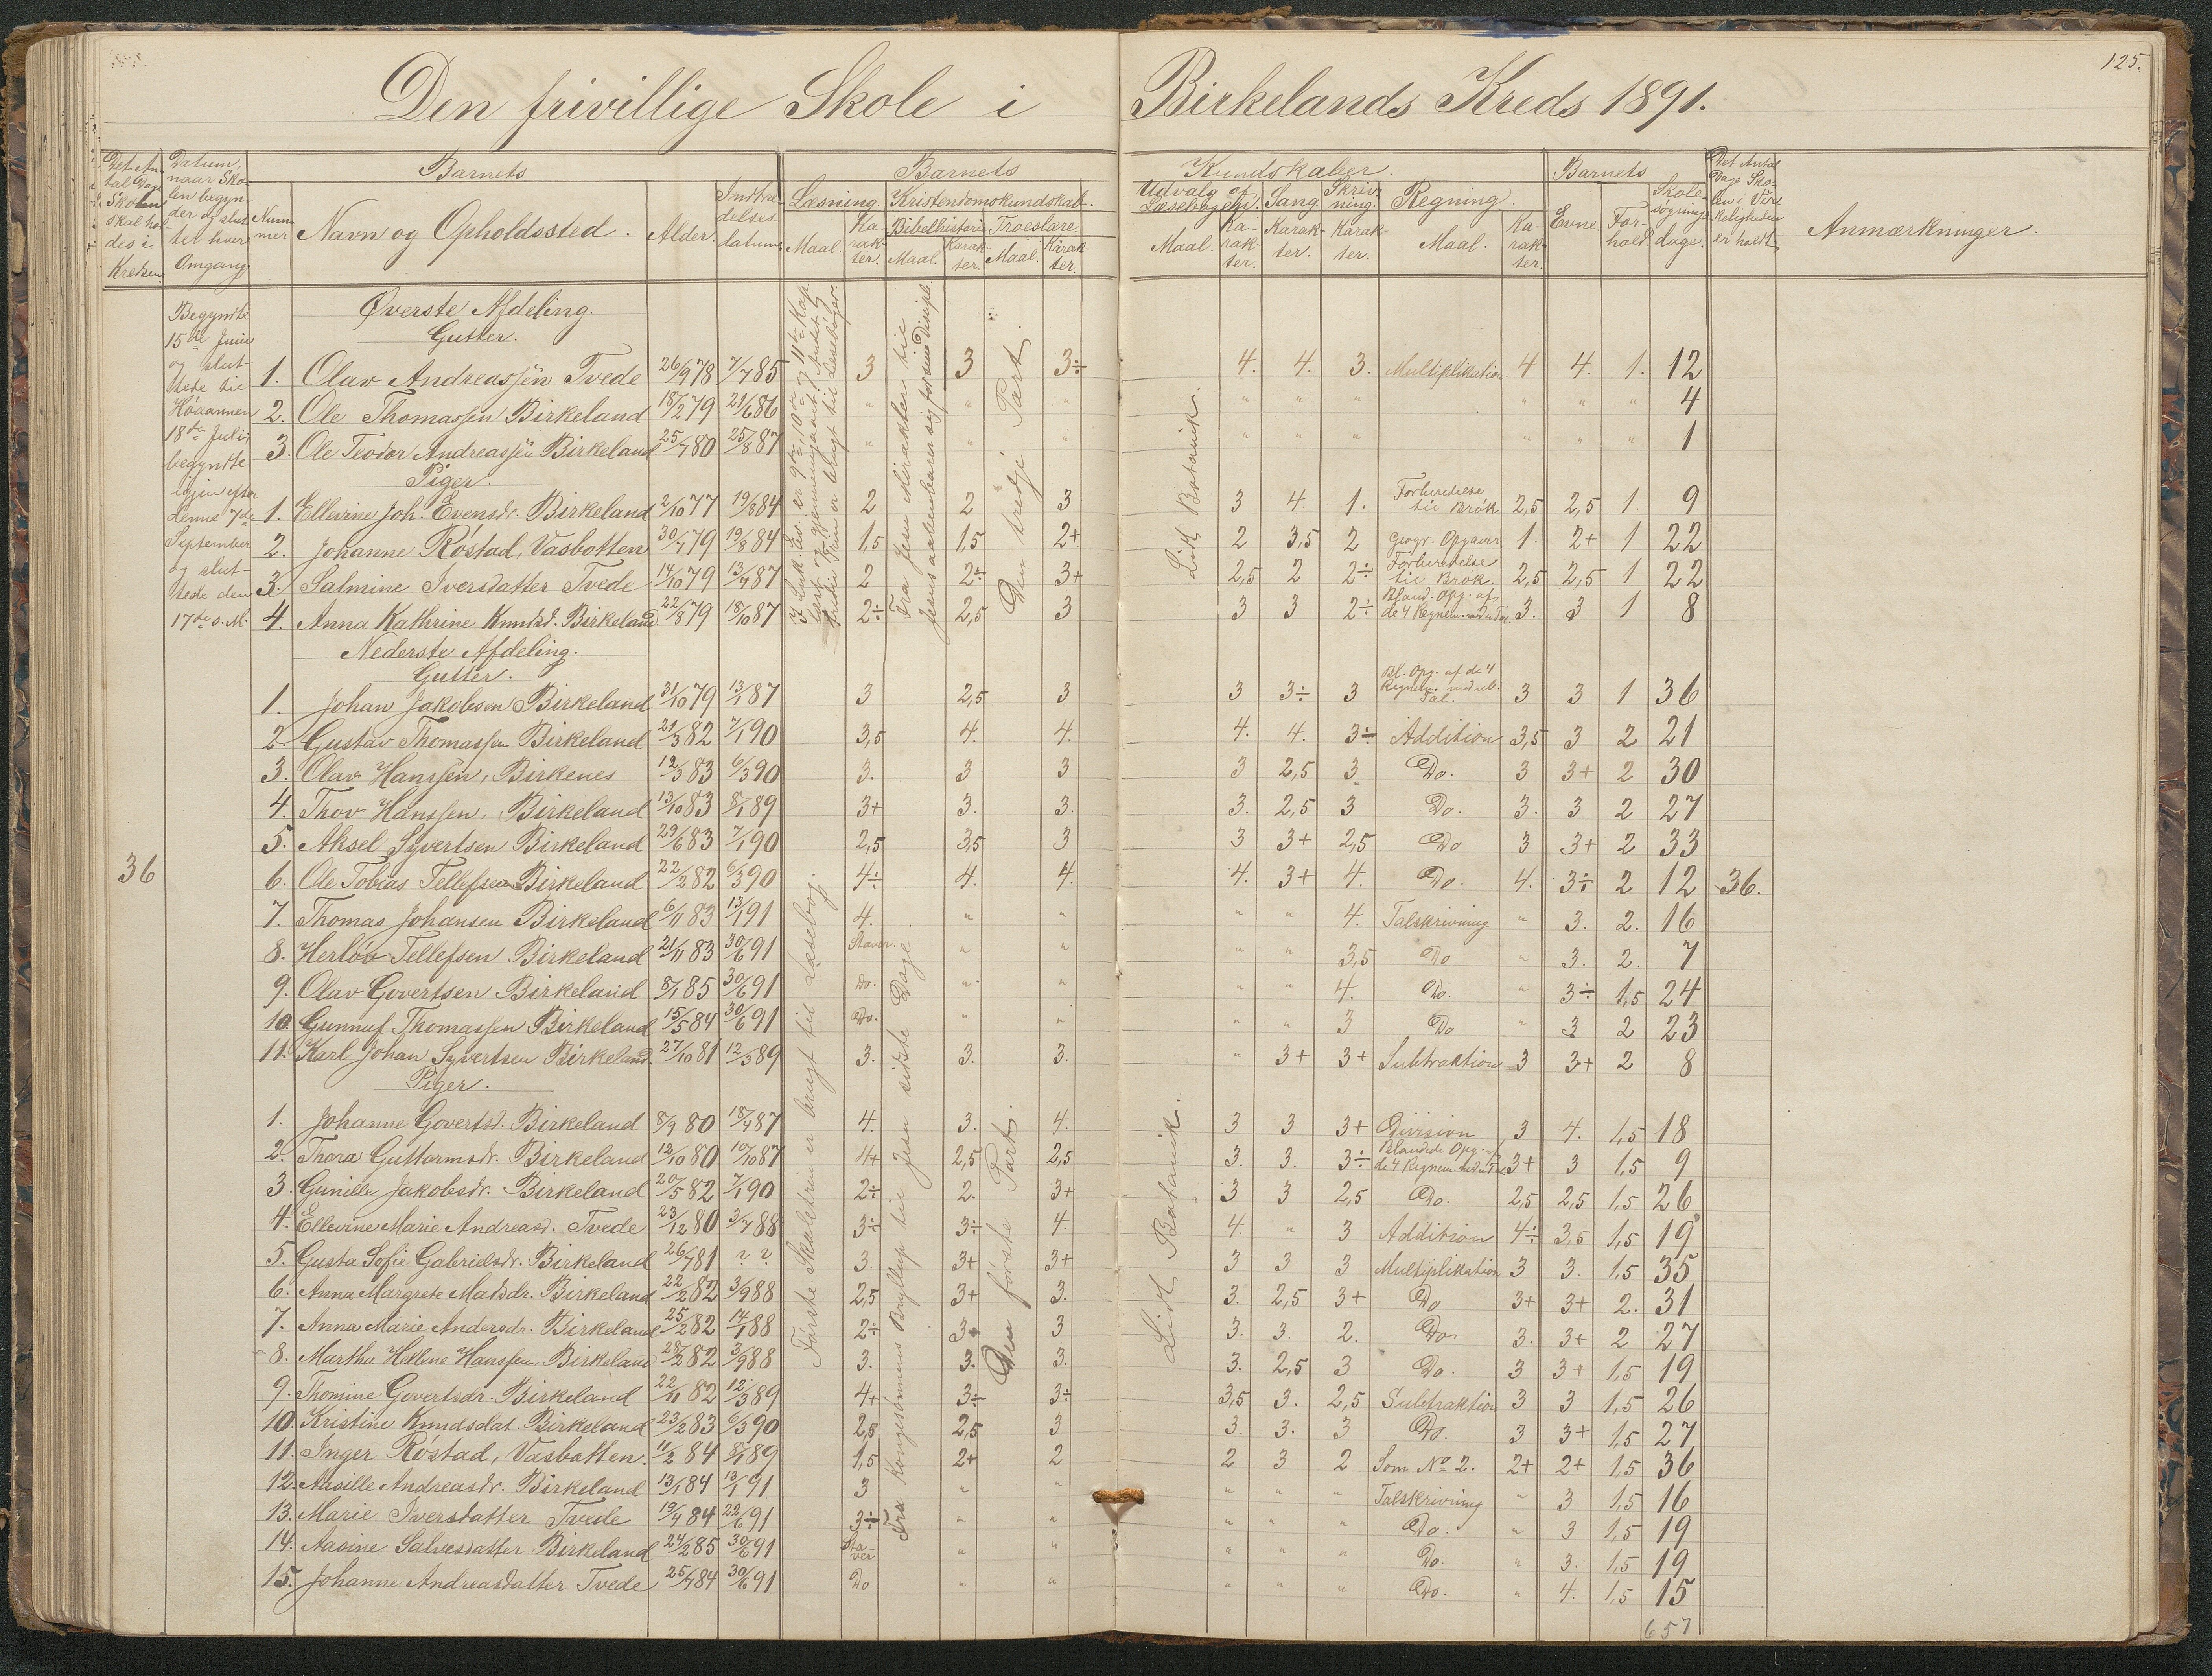 125.
Den frivillige Skole i Birkelands Kreds 1891.
Det Antal Dage Skolen skal holdes i Kredsen
Datum, naar Skolen begynder og sluttet hver Omgang.
Barnets
Nummer
Navn og Opholdssted.
Alder.
Indtrædelsesdatum.
Barnets Kundskaber.
Læsning. Maal. Karakter.
Kristendomskundskab.
Bibelhistorie Maal. Karakter.
Troeslære. Maal. Karakter.
Udvalg af Læsebogen. Maal. Karakter.
Sang. Karakter.
Skrivning. Karakter.
Regning. Maal. Karakter.
Barnets
Evne. Forhold. Skolesøgningsdage.
Det Antal Dage Skolen i Virkeligheden er holdt
Anmærkninger.
Begyndte
15de Juni
og slut-
tede til
Høaannen
18de Juli,
begyndte
igjen efter
denne 7de
September
og slut-
tede den
17de s. M.
36
Øverste Afdeling.
Gutter.
1. Olav Andreassen Tvede 26/9 78 7/7 85 3 3 3÷ 4. 4. 3. Multiplikation 4 4. 1. 12
2. Ole Thomassen Birkeland 18/2 79 21/6 86 " " " " " " " " " 4
3. Ole Teodor Andreassen Birkeland 25/7 80 25/8 87 " " " " " " " " " 1
Piger.
1. Ellevine Joh. Evensdr. Birkeland 2/10 77 19/8 84 2 2 3 3 4. 1. Forberedelse til Brøk 2,5 2,5 1. 9
2. Johanne Røstad, Vasbotten 30/7 79 19/8 84 1,5 1,5 2+ 2 3,5 2 Geogr. Opgaver 1. 2+ 1 22
3. Salmine Iversdatter Tvede 14/10 79 13/7 87 2 2÷ 3+ 2,5 2 2÷ Forberedelse til Brøk. 2,5 2,5 1 22
4. Anna Kathrine Knudsd. Birkeland 22/8 79 18/10 87 2÷ 2,5 3 3 3 2÷ Bland. Opg. af de 4 Regnem. 3. 3 1 8
Fra Jesu Mirakler til
Jesus aabenbarer sig for sine Disciple.
Den tredje Part.
Lidt Botanik.
Nederste Afdeling.
Gutter.
1. Johan Jakobsen Birkeland 31/10 79 13/1 87 3 2,5 3 3 3÷ 3 Bl. Opg. af de 4 Regnem. Tal. 3 3 1 36
2. Gustav Thomassen Birkeland 21/3 82 7/1 90 3,5 4. 4. 4. 4. 3÷ Addition 3,5 3 2 21
3. Olav Hanssen, Birkenes 12/3 83 6/3 90 3. 3 3 3 2,5 3 Do. 3 3+ 2 30
4. Thov Hanssen, Birkeland 13/10 83 8/1 89 3+ 3. 3. 3. 2,5 3 Do. 3. 3 2 27
5. Aksel Syvertsen Birkeland 29/6 83 7/1 90 2,5 3,5 3 3 3+ 2,5 Do 3 3+ 2 33
6. Ole Tobias Tellefsen Birkeland 22/2 82 6/3 90 4÷ 4. 4. 4. 3+ 4. Do. 4. 3÷ 2 12 36.
7. Thomas Johansen Birkeland 6/11 83 13/1 91 4. " " " " 4. Talskrivning " 3. 2. 16
8. Herløv Tellefsen Birkeland 21/11 83 30/6 91 Staver. " " " " 3,5 Do " 3. 2. 7
9. Olav Govertsen Birkeland 8/1 85 30/6 91 Do. " " " " 4. Do. " 3÷ 1,5 24
10. Gunnuf Thomassen Birkeland 15/5 84 30/6 91 Do. " " " " 3 Do " 3 2 23
11. Karl Johan Syvertsen Birkeland. 27/10 81 12/3 89 3. 3. 3. " 3+ 3+ Subtraktion 3 3+ 2 8
Piger.
1. Johanne Govertsd. Birkeland 8/9 80 18/7 87 4. 3. 4. 3 3 3+ Division 3 4. 1,5 18
2. Thora Guttormsdr. Birkeland 12/10 80 10/10 87 4+ 2,5 2,5 3. 3. 3÷ Blandede Opg. af de 4 Regnem. 3+ 3 1,5 9
3. Gunille Jakobsdr. Birkeland 20/5 82 7/1 90 2÷ 2. 3+ 3 3 2,5 Do. 2,5 2,5 1,5 26
4. Ellevine Marie Andreasd. Tvede 23/12 80 3/7 88 3÷ 3÷ 4. 4. " 3 Addition 4÷ 3,5 1,5 19
5. Gusta Sofie Gabrielsdr. Birkeland 26/7 81 ? ? 3. 3+ 3+ 3 3 3 Multiplikation 3 3. 1,5 35
6. Anna Margrete Madsdr. Birkeland 22/2 82 3/9 88 2,5 3+ 3. 3. 2,5 3+ Do 3+ 3+ 2. 31
7. Anna Marie Andersdr. Birkeland 25/2 82 14/1 88 2÷ 3+ 3 3. 3. 2. Do 3. 3+ 2 27
8. Martha Hellene Hanssen, Birkeland 28/2 82 3/9 88 3. 3. 3. 3. 2,5 3 Do. 3 3+ 1,5 19
9. Thomine Govertsdr. Birkeland 22/11 82 12/3 89 4+ 3÷ 3÷ 3,5 3. 2,5 Subtraktion 3 3 1,5 26
10. Kristine Knudsdat. Birkeland 23/2 83 6/3 90 2,5 2,5 3 3. 3. 3 Do. 3 3+ 1,5 27
11. Inger Røstad, Vasbotten. 11/2 84 8/1 89 1,5 2+ 2 2 3 2 Som No 2. 2+ 2+ 1,5 36
12. Aasille Andreasdr. Birkeland 13/1 84 13/1 91 3 " " " " " Talskrivning " 3 1,5 16
13. Marie Iversdatter Tvede 19/4 84 22/6 91 3÷ " " " " " Do. " 3 1,5 19
14. Aasine Salvesdatter Birkeland 24/2 85 30/6 91 Staver " " " " " Do. " 3. 1,5 19
15. Johanne Andreasdatter Tvede 25/7 84 30/6 91 Do " " " " " Do. " 4. 1,5 15
Første Skaletrin er brugt til Læsebog.
Fra Kongesønnens Bryllup til Jesu sidste Dage.
Den første Part.
Lidt Botanik.
657